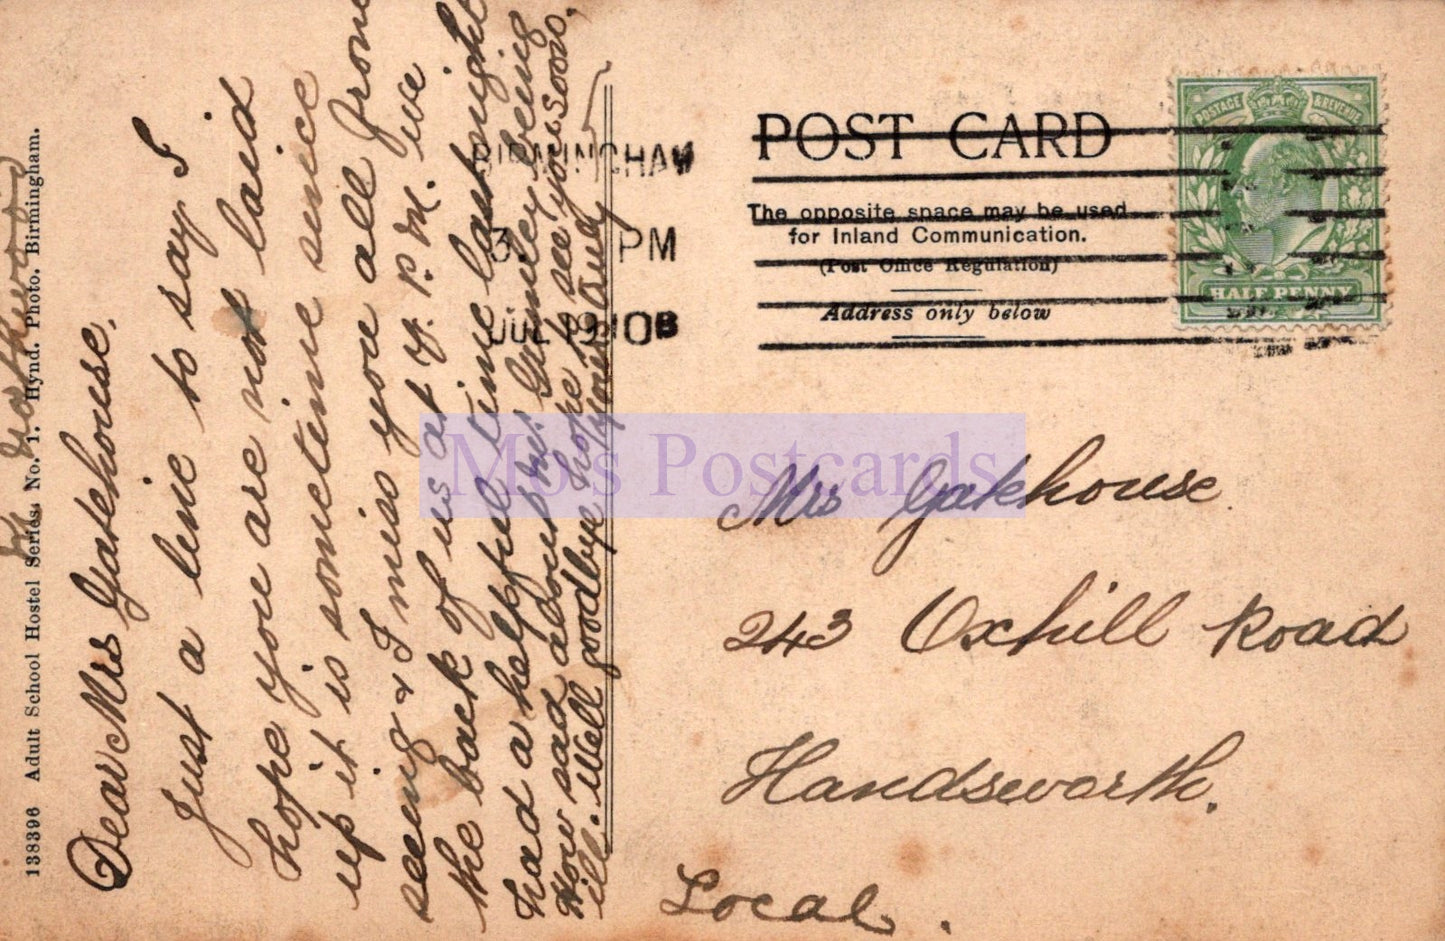 POST CARD
The opposite space may be used
for Inland Communication.
(Post Office Regulation)
Address only below
POSTAGE & REVENUE
HALF PENNY
BIRMINGHAM
3. PM
JUL 19 10 B
Mrs Gatehouse
243 Oxhill Road
Handsworth.
Local.
Dear Mrs Gatehouse.
Just a line to say I
hope you are not laid
up it is sometime since
seeing & I miss you all from
the back of us at Y. P. M. we
had a helpful time last night
How sad about Mrs Gumley being
ill. Well goodbye hope to see you soon.
Yours
138396 Adult School Hostel Series, No. 1. Hynd. Photo. Birmingham.
Mo's Postcards